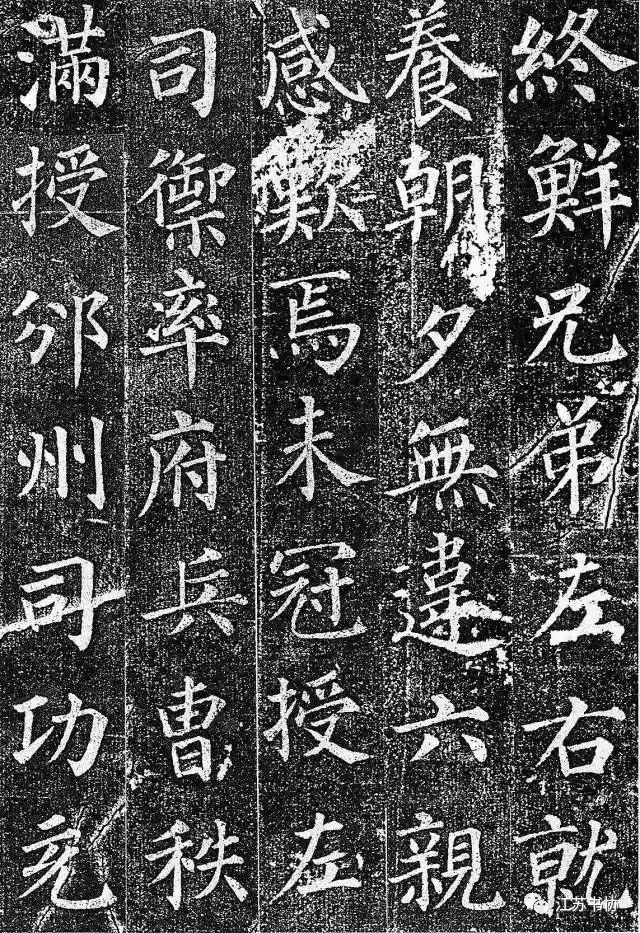 終鮮兄弟左右就
養朝夕無違六親
感歎焉未冠授左
司禦率府兵曺秩
滿授邠州司功充
江苏书协